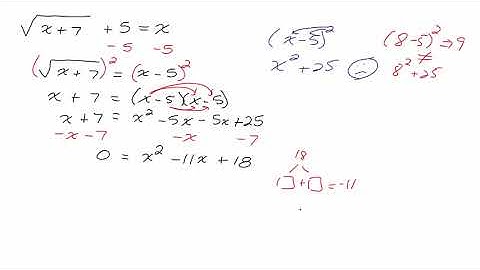 √x+7 + 5 = x
-5 -5
(√x+7)² = (x-5)²
x + 7 = (x-5)(x-5)
x+7 = x² -5x -5x +25
-x -7 -x -7
0 = x² -11x + 18
(x-5)²
x² + 25
(8-5)² ⇒ 9
≠
8² + 25
18
1□ + □ = -11